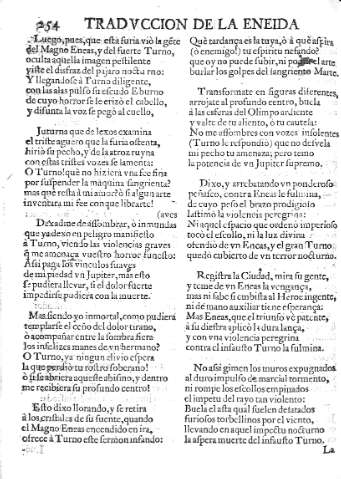 254 TRADVCCION DE LA ENEIDA
Luego, pues, que esta furia viò la gẽte
del Magno Eneas, y del fuerte Turno,
oculta aquella imagen pestilente
viste el disfraz del pajaro nocturno:
Y llegandose à Turno diligente,
con las alas pulsò su escudo Eburno
de cuyo horror se le erizò el cabello,
y difunta la voz se pegò al cuello,
Juturna que de lexos examina
el triste aguero que la furia ostenta,
hiriò su pecho, y de la atroz ruyna
con estas tristes vozes se lamenta:
O Turno! què no hiziera vna fee fina
por suspender la maquina sangrienta?
mas que resta à mi amor? ò si algun arte
inventara mi fee con que librarte!
(aves
Dexadme de assombrar, ò inmundas
que ya dexo en peligro manifiesto
à Turno, viendo las violencias graves
q̃ me amenaça vuestro horror funesto:
Assi paga los vinculos suaves
de mi piedad vn Jupiter, mas esto
se pudiera llevar, si el dolor fuerte
impedirse pudiera con la muerte.
Mas siendo yo inmortal, como pudiera
templarse el ceño del dolor tirano,
ò acompañar entre la sombra fiera
los infelizes manes de vn hermano?
O Turno, ya ningun alivio espera
la que perdiò tu rostro soberano!
ò si se abriera aqueste abismo, y dentro
me recibiera su profundo centro!
Esto dixo llorando, y se retira
à los cristales de su fuente, quando
el Magno Eneas encendido en ira,
ofrece à Turno este sermon infando:
Què tardança es la tuya, ò à què aspira
(ò enemigo!) tu espiritu nefando?
que oy no puede subir, ni por el arte
burlar los golpes del sangriento Marte.
Transformate en figuras diferentes,
arrojate al profundo centro, buela
à las esferas del Olimpo ardiente
y valte de tu aliento, ò tu cautela:
No me assombres con vozes insolentes
(Turno le respondiò) que no desvela
mi pecho tu amenaza; pero temo
la potencia de vn Jupiter supremo.
Dixo, y arrebatando vn ponderoso
peñasco, contra Eneas le fulmina,
de cuyo peso el brazo prodigioso
lastimò la violencia peregrina:
Ni aquel espacio que ordenò imperioso
tocò el escollo, ni la luz divina
ofendiò de vn Eneas, y el gran Turno
quedò cubierto de vn terror nocturno.
Registra la Ciudad, mira su gente,
y teme de vn Eneas la vengança,
mas ni sabe si embista al Heroe ingente,
ni de mano auxiliar tiene esperança:
Mas Eneas, que el triunfo vè patente,
à su diestra aplicò la dura lança,
y con vna violencia peregrina
contra el infausto Turno la fulmina.
No assi gimen los muros expugnados
al duro impulso de marcial tormento,
ni rompe los escollos empinados
el impetu del rayo tan violento:
Buela el asta qual suelen desatados
furiosos torbellinos por el viento,
llevando en aquel impetu nocturno
la aspera muerte del infausto Turno.
La